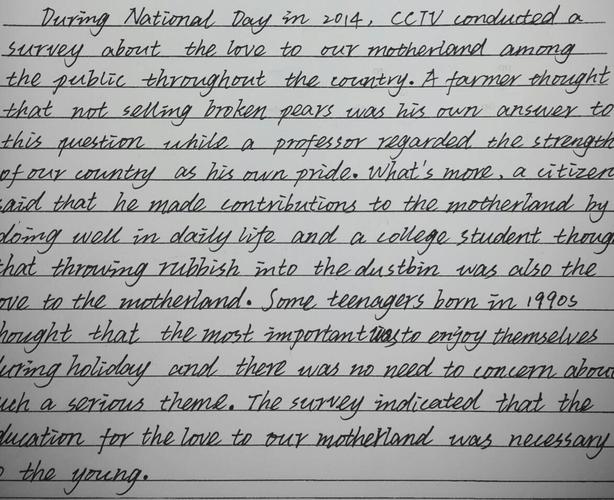 During National Day in 2014, CCTV conducted a
survey about the love to our motherland among
the public throughout the country. A farmer thought
that not selling broken pears was his own answer to
this question while a professor regarded the strength
of our country as his own pride. What's more, a citizen
said that he made contributions to the motherland by
doing well in daily life and a college student thoug
that throwing rubbish into the dustbin was also the
ove to the motherland. Some teenagers born in 1990s
hought that the most important was to enjoy themselves
uring holiday and there was no need to concern about
uch a serious theme. The survey indicated that the
ducation for the love to our motherland was necessary
o the young.